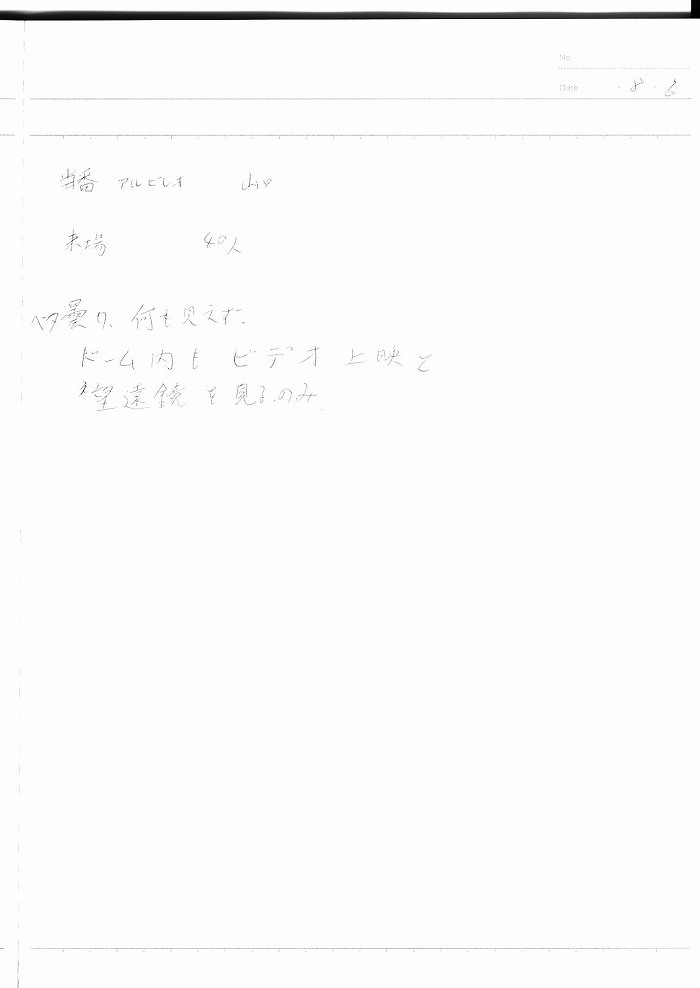 No
Date ・8・6
当番 アルビレオ 山口
来場 40人
ベタ曇り、何も見えず。
ドーム内も ビデオ上映と
望遠鏡を見るのみ